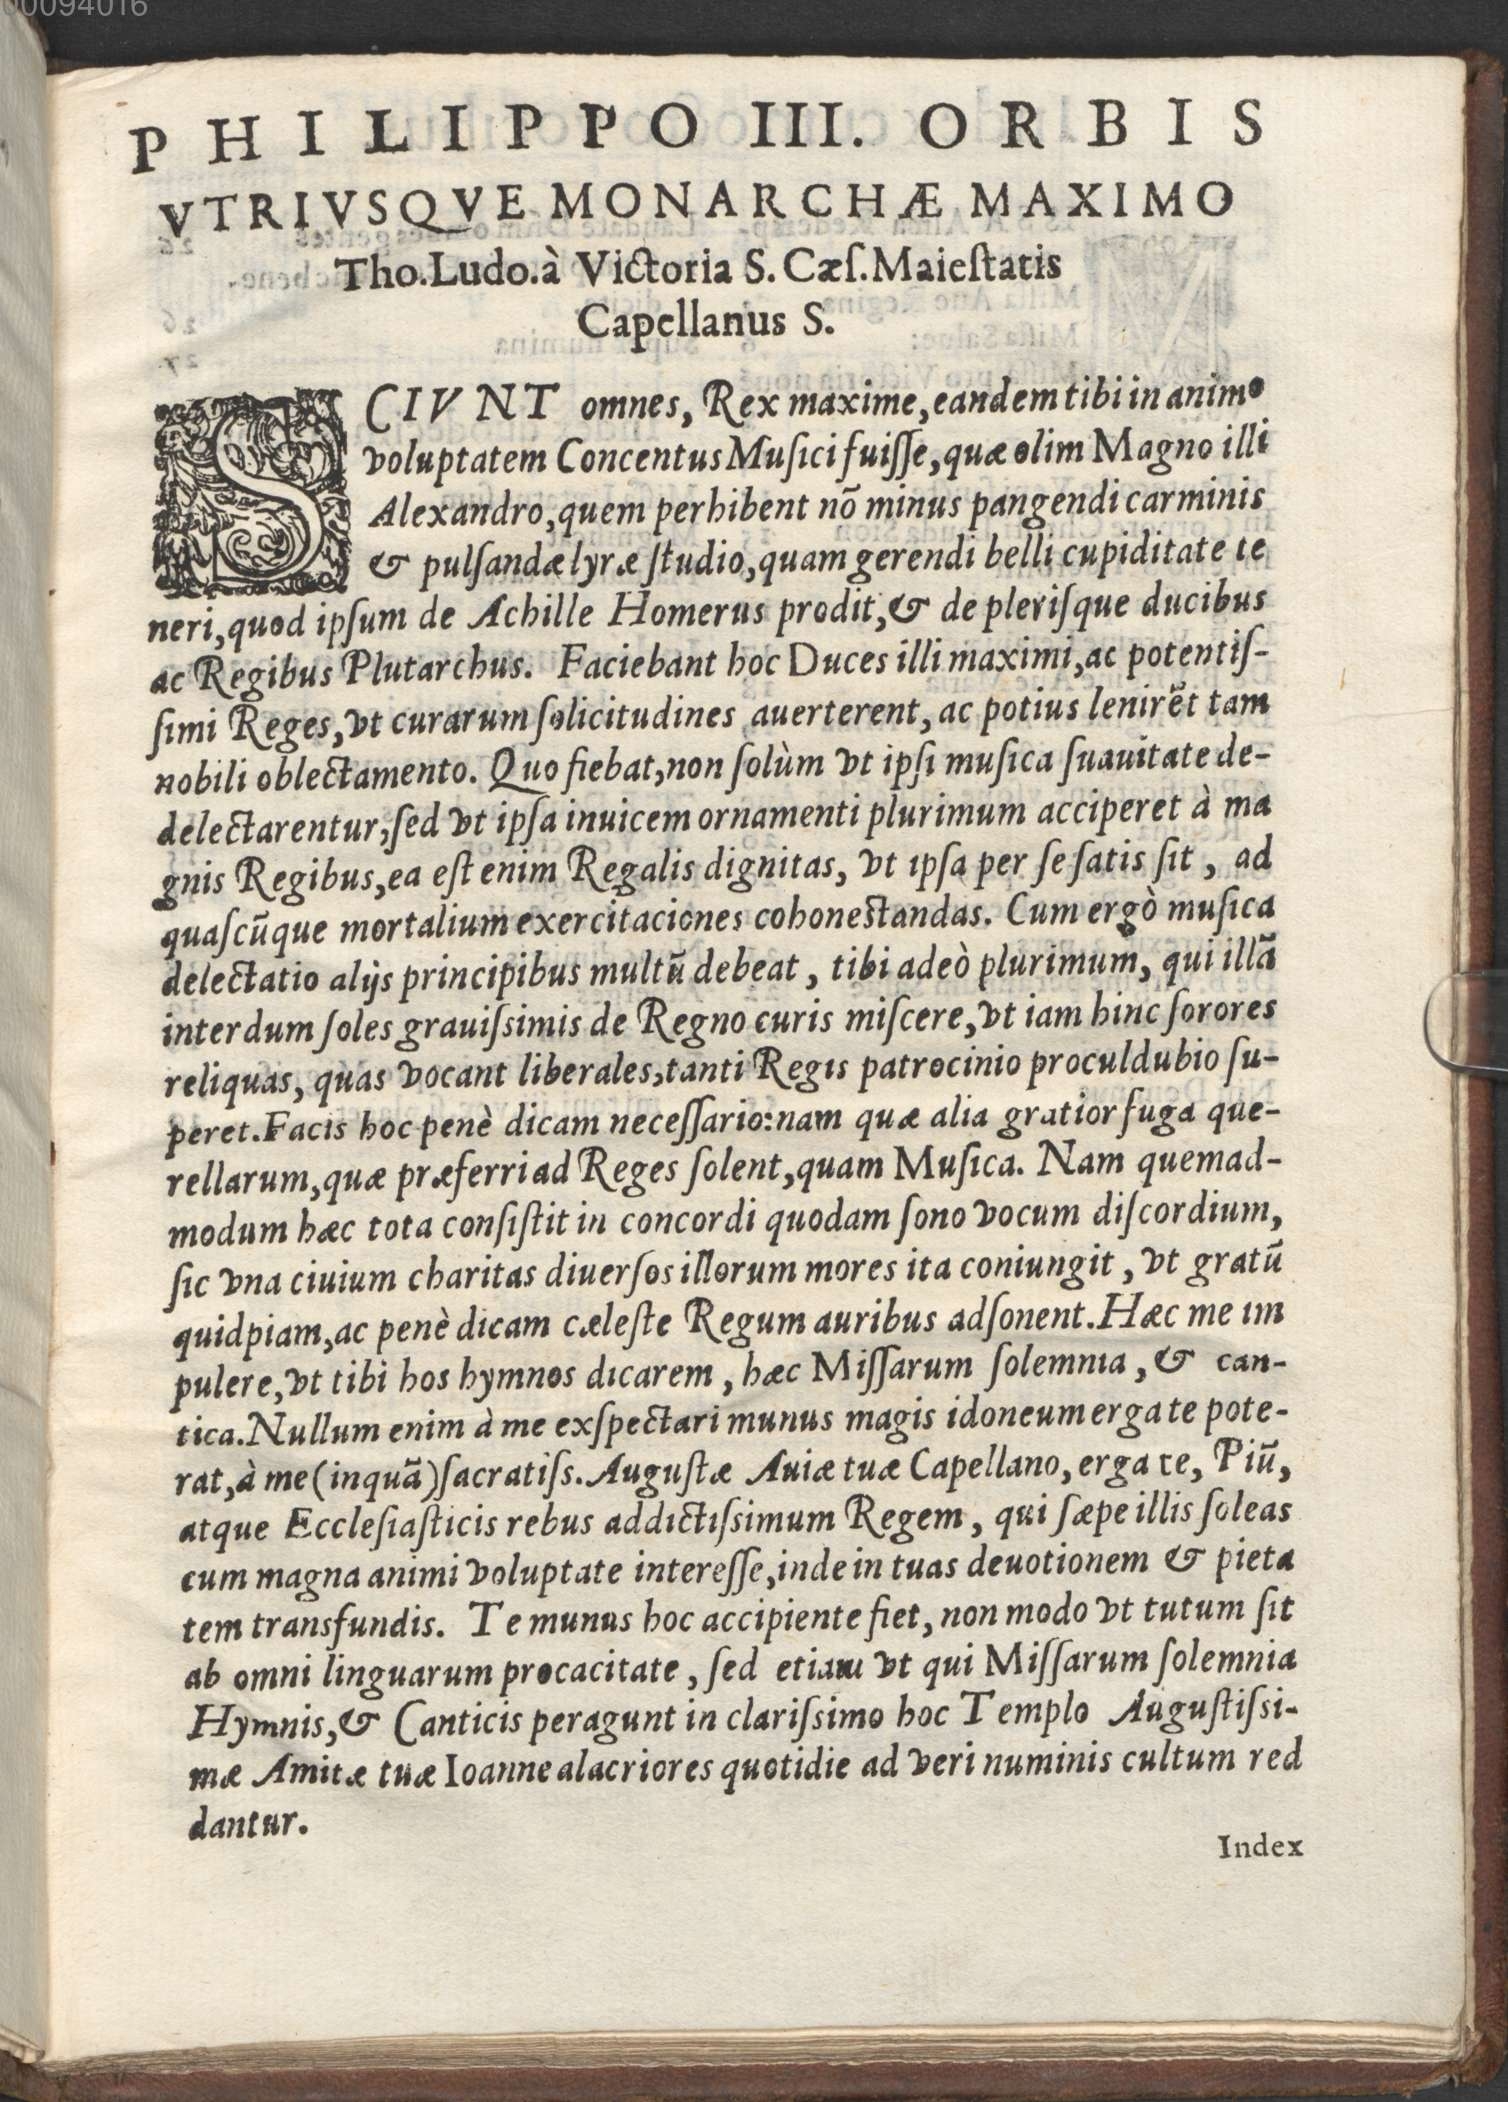 00094016
PHILIPPO III. ORBIS
VTRIVSQVE MONARCHÆ MAXIMO
Tho.Ludo.à Victoria S. Cæſ.Maieſtatis
Capellanus S.
SCIVNT omnes, Rex maxime, eandem tibi in animo
voluptatem Concentus Muſici fuiſſe, quæ olim Magno illi
Alexandro, quem perhibent nõ minus pangendi carminis
& pulſandæ lyræ ſtudio, quam gerendi belli cupiditate te
neri, quod ipſum de Achille Homerus prodit, & de pleriſque ducibus
ac Regibus Plutarchus. Faciebant hoc Duces illi maximi, ac potentiſ-
ſimi Reges, vt curarum ſolicitudines auerterent, ac potius lenirẽt tam
nobili oblectamento. Quo fiebat, non ſolùm vt ipſi muſica ſuauitate de-
delectarentur, ſed vt ipſa inuicem ornamenti plurimum acciperet à ma
gnis Regibus, ea eſt enim Regalis dignitas, vt ipſa per ſe ſatis ſit, ad
quaſcũque mortalium exercitaciones cohoneſtandas. Cum ergò muſica
delectatio alijs principibus multũ debeat, tibi adeò plurimum, qui illã
interdum ſoles grauiſsimis de Regno curis miſcere, vt iam hinc ſorores
reliquas, quas vocant liberales, tanti Regis patrocinio proculdubio ſu-
peret. Facis hoc penè dicam neceſſario: nam quæ alia gratior fuga que-
rellarum, quæ præferri ad Reges ſolent, quam Muſica. Nam quemad-
modum hæc tota conſiſtit in concordi quodam ſono vocum diſcordium,
ſic vna ciuium charitas diuerſos illorum mores ita coniungit, vt gratũ
quidpiam, ac penè dicam cæleſte Regum auribus adſonent. Hæc me im
pulere, vt tibi hos hymnos dicarem, hæc Miſſarum ſolemnia, & can-
tica. Nullum enim à me exſpectari munus magis idoneum erga te pote-
rat, à me (inquã) ſacratiſs. Auguſtæ Auiæ tuæ Capellano, erga te, Piũ,
atque Eccleſiaſticis rebus addictiſsimum Regem, qui ſæpe illis ſoleas
cum magna animi voluptate intereſſe, inde in tuas deuotionem & pieta
tem transfundis. Te munus hoc accipiente fiet, non modo vt tutum ſit
ab omni linguarum procacitate, ſed etiam vt qui Miſſarum ſolemnia
Hymnis, & Canticis peragunt in clariſsimo hoc Templo Auguſtiſsi-
mæ Amitæ tuæ Ioanne alacriores quotidie ad veri numinis cultum red
dantur.
Index